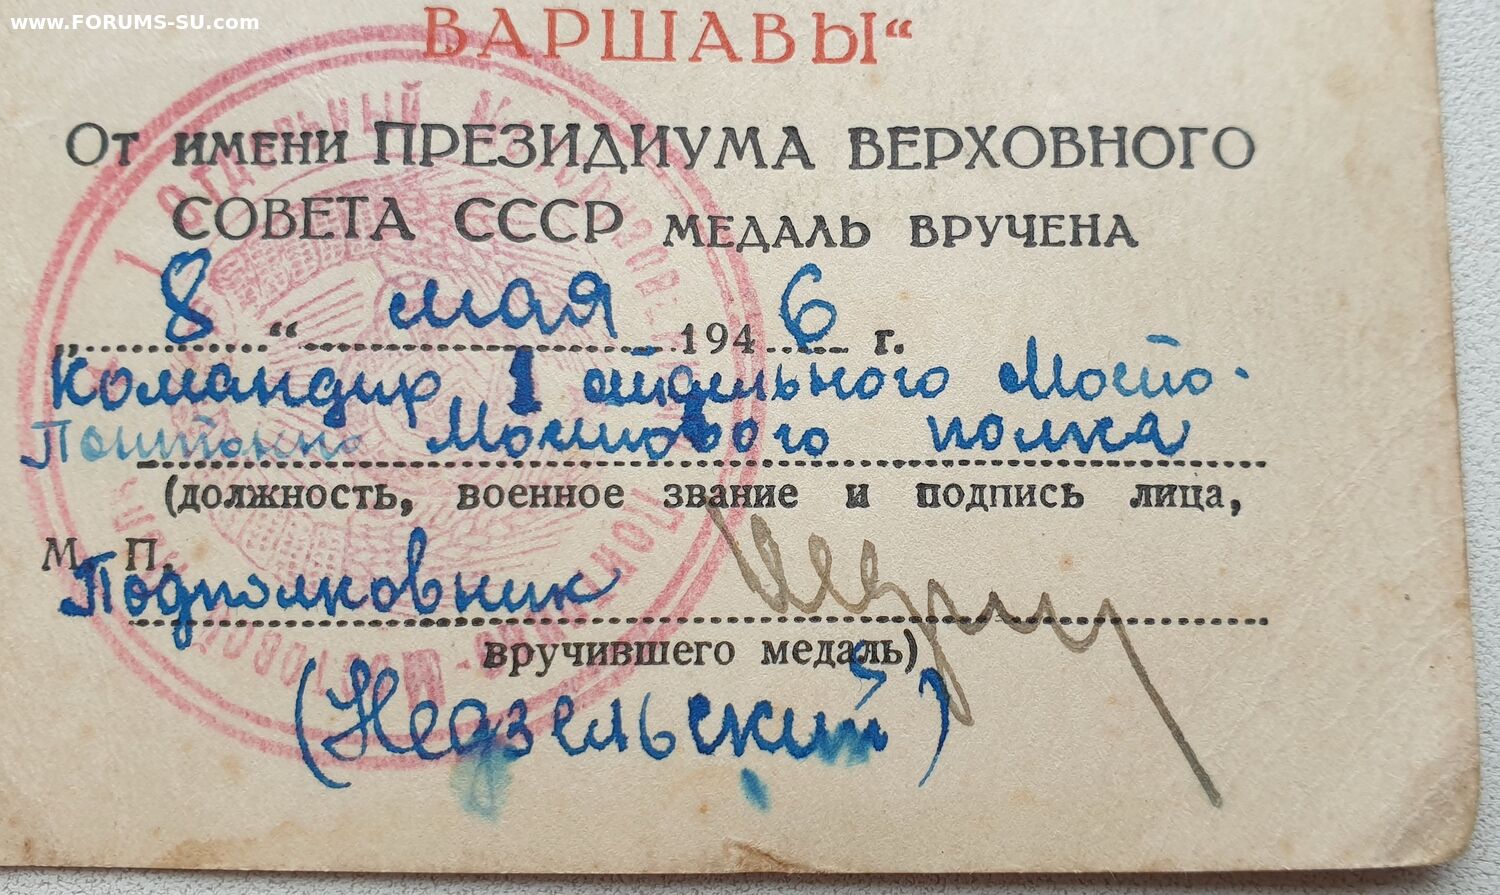 www.FORUMS-SU.com
ВАРШАВЫ“
От имени ПРЕЗИДИУМА ВЕРХОВНОГО
СОВЕТА СССР МЕДАЛЬ ВРУЧЕНА
„ 8 “ мая 1946 г.
Командир 1 отдельного Мосто-
Понтонно Мостового полка
(должность, военное звание и подпись лица,
М. П.
Подполковник
вручившего медаль)
(Недзельский)
ОТДЕЛЬНЫЙ
ПОНТОННО-МОСТОВОЙ